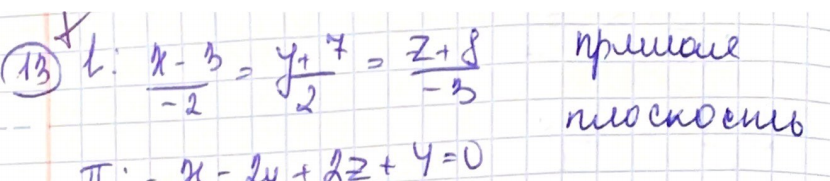 13 l: (x - 3)/(-2) = (y + 7)/2 = (z + 8)/(-3) прямая
плоскость
π: -x - 2y + 2z + 4 = 0